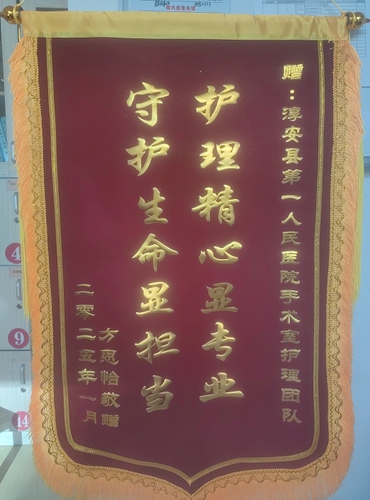 赠：淳安县第一人民医院手术室护理团队
护理精心显专业
守护生命显担当
方恩怡敬赠
二零二五年一月
4
9
14